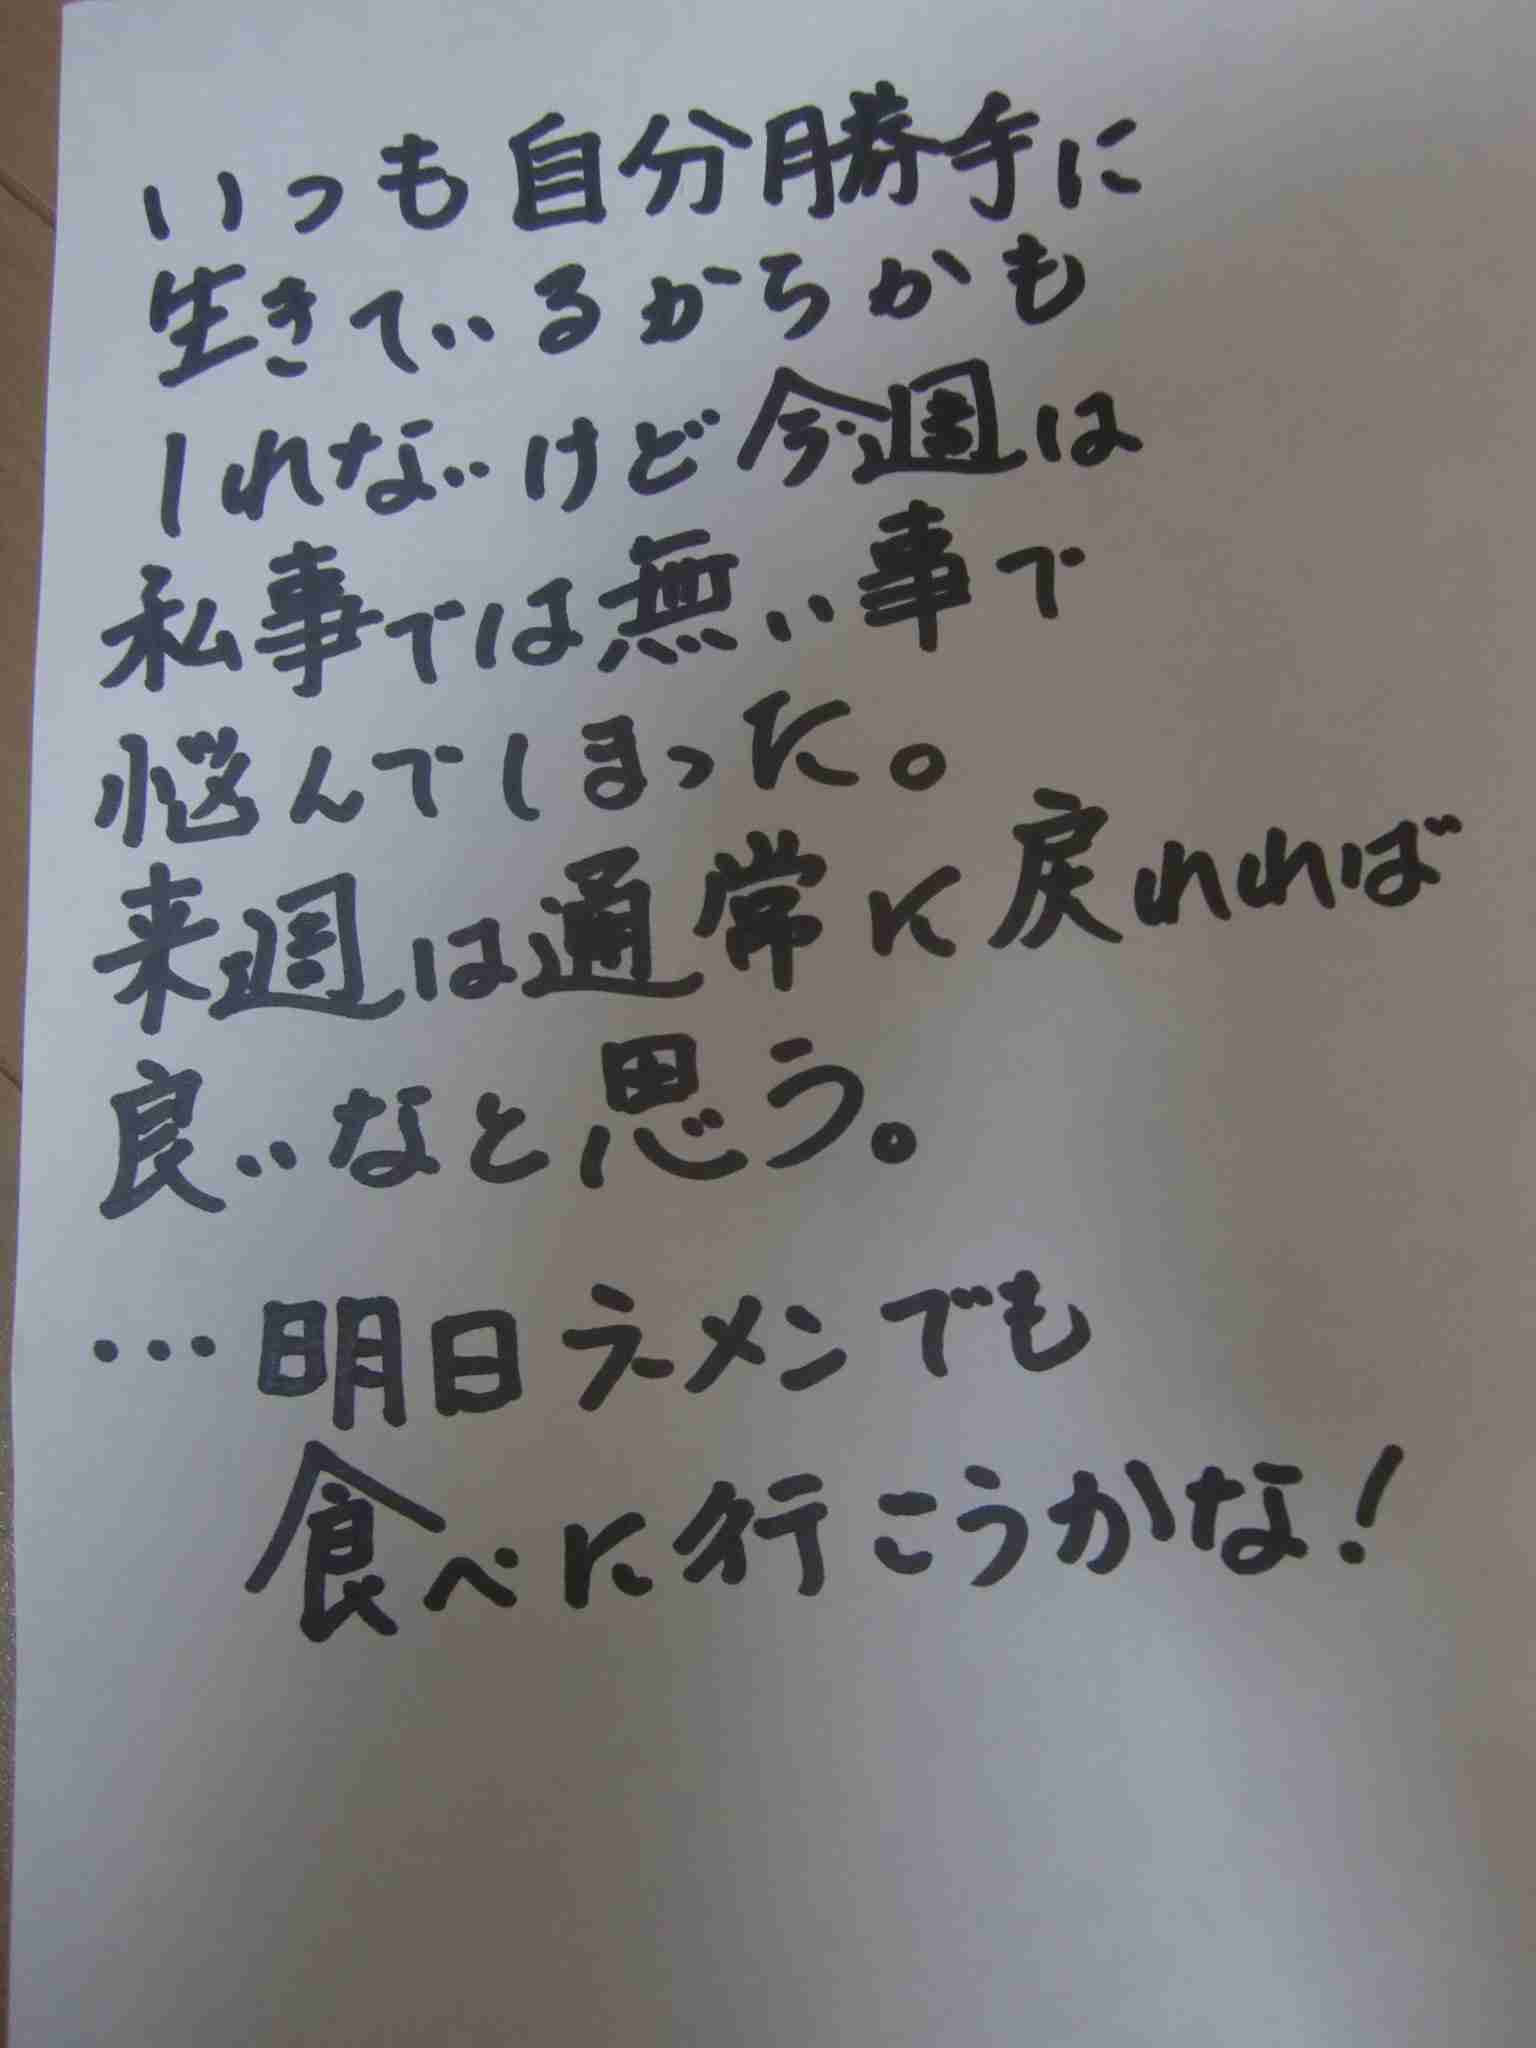 いつも自分勝手に
生きているからかも
しれないけど今週は
私事では無い事で
悩んでしまった。
来週は通常に戻れれば
良いなと思う。
…明日ラメンでも
食べに行こうかな!